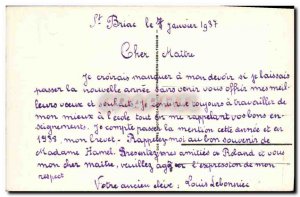 St Briac le 7 Janvier 1937
Cher Maître
Je croirais manquer à mon devoir si je laissais
passer la nouvelle année sans venir vous offrir mes meil-
leurs vœux et souhaits. Je continue toujours à travailler de
mon mieux à l'école tout en me rappelant vos bons en-
seignements. Je compte passer la mention cette année et en
1939, mon brevet - Rappelez moi au bon souvenir de
Madame Hamel. Présentez mes amitiés à Roland et vous
mon cher maître, veuillez agréer l'expression de mon
respect
Votre ancien élève : Louis Lebonnier